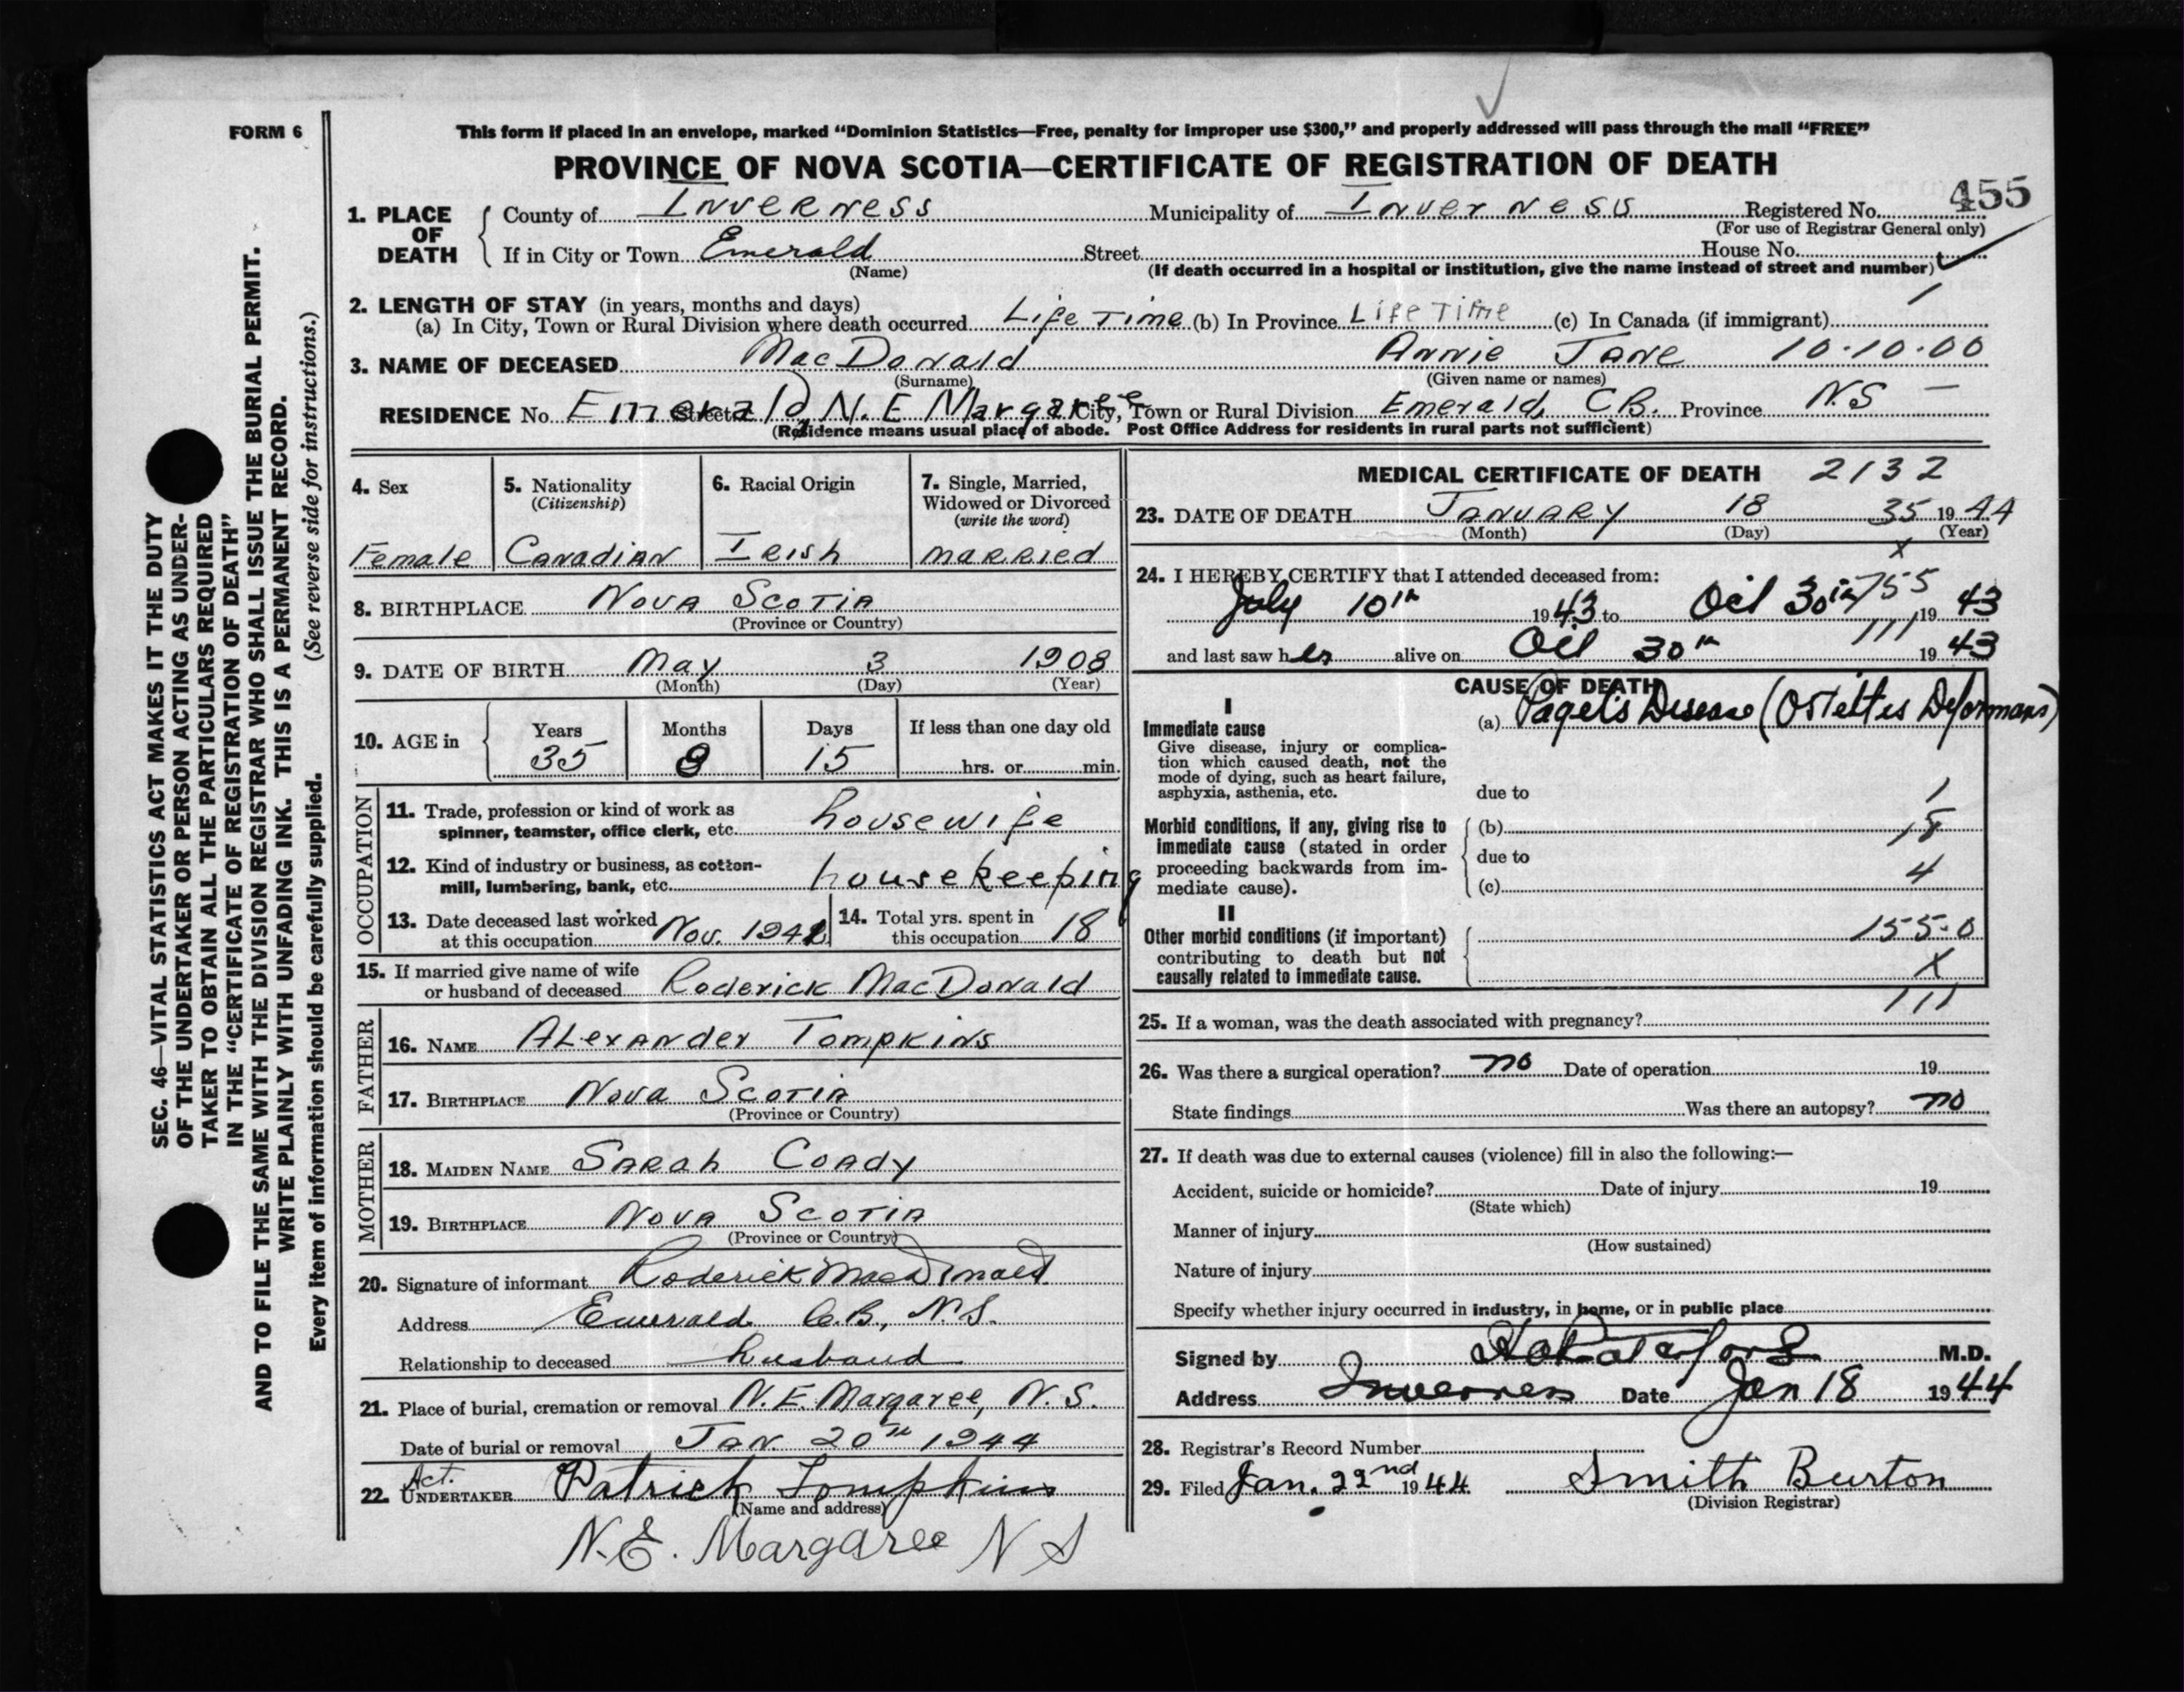 FORM 6
This form if placed in an envelope, marked "Dominion Statistics—Free, penalty for improper use $300," and properly addressed will pass through the mail "FREE"
PROVINCE OF NOVA SCOTIA—CERTIFICATE OF REGISTRATION OF DEATH
455
1. PLACE OF DEATH
County of Inverness Municipality of Inverness Registered No.
(For use of Registrar General only)
If in City or Town Emerald Street House No.
(Name) (If death occurred in a hospital or institution, give the name instead of street and number)
2. LENGTH OF STAY (in years, months and days)
(a) In City, Town or Rural Division where death occurred Life Time (b) In Province Life Time (c) In Canada (if immigrant)
3. NAME OF DECEASED MacDonald Annie Jane 10·10·00
(Surname) (Given name or names)
RESIDENCE No. Emerald Street N. E Margaree City, Town or Rural Division Emerald, C B. Province N.S —
(Residence means usual place of abode. Post Office Address for residents in rural parts not sufficient)
4. Sex
Female
5. Nationality
(Citizenship)
Canadian
6. Racial Origin
Irish
7. Single, Married,
Widowed or Divorced
(write the word)
married
8. BIRTHPLACE Nova Scotia
(Province or Country)
9. DATE OF BIRTH May 3 1908
(Month) (Day) (Year)
10. AGE in
Years Months Days If less than one day old
35 8 15 hrs. or min.
OCCUPATION
11. Trade, profession or kind of work as
spinner, teamster, office clerk, etc. housewife
12. Kind of industry or business, as cotton-
mill, lumbering, bank, etc. housekeeping
13. Date deceased last worked
at this occupation Nov. 1942
14. Total yrs. spent in
this occupation 18
15. If married give name of wife
or husband of deceased Roderick MacDonald
FATHER
16. NAME Alexander Tompkins
17. BIRTHPLACE Nova Scotia
(Province or Country)
MOTHER
18. MAIDEN NAME Sarah Coady
19. BIRTHPLACE Nova Scotia
(Province or Country)
20. Signature of informant Roderick MacDonald
Address Emerald C.B., N.S.
Relationship to deceased husband
21. Place of burial, cremation or removal N. E. Margaree, N. S.
Date of burial or removal Jan. 20th 1944
22. Act. UNDERTAKER Patrick Tompkins
(Name and address)
N. E. Margaree N S
MEDICAL CERTIFICATE OF DEATH 2132
23. DATE OF DEATH January 18 35 1944
(Month) (Day) (Year)
x
24. I HEREBY CERTIFY that I attended deceased from:
July 10th 1943 to Oct 30th 1943
755
and last saw her alive on Oct 30th 1943
111
CAUSE OF DEATH
I
Immediate cause
Give disease, injury or complica-
tion which caused death, not the
mode of dying, such as heart failure,
asphyxia, asthenia, etc.
(a) Paget's Disease (Osteitis Deformans)
due to
Morbid conditions, if any, giving rise to
immediate cause (stated in order
proceeding backwards from im-
mediate cause).
(b)
due to
(c) 4
II
Other morbid conditions (if important)
contributing to death but not
causally related to immediate cause.
155-0
X
111
25. If a woman, was the death associated with pregnancy?
26. Was there a surgical operation? no Date of operation 19
State findings Was there an autopsy? no
27. If death was due to external causes (violence) fill in also the following:—
Accident, suicide or homicide? Date of injury 19
(State which)
Manner of injury
(How sustained)
Nature of injury
Specify whether injury occurred in industry, in home, or in public place
Signed by M.D.
Address Inverness Date Jan 18 1944
28. Registrar's Record Number
29. Filed Jan. 22nd 1944 Smith Burton
(Division Registrar)
SEC. 46—VITAL STATISTICS ACT MAKES IT THE DUTY
OF THE UNDERTAKER OR PERSON ACTING AS UNDER-
TAKER TO OBTAIN ALL THE PARTICULARS REQUIRED
IN THE "CERTIFICATE OF REGISTRATION OF DEATH"
AND TO FILE THE SAME WITH THE DIVISION REGISTRAR WHO SHALL ISSUE THE BURIAL PERMIT.
WRITE PLAINLY WITH UNFADING INK. THIS IS A PERMANENT RECORD.
Every item of information should be carefully supplied. (See reverse side for instructions.)